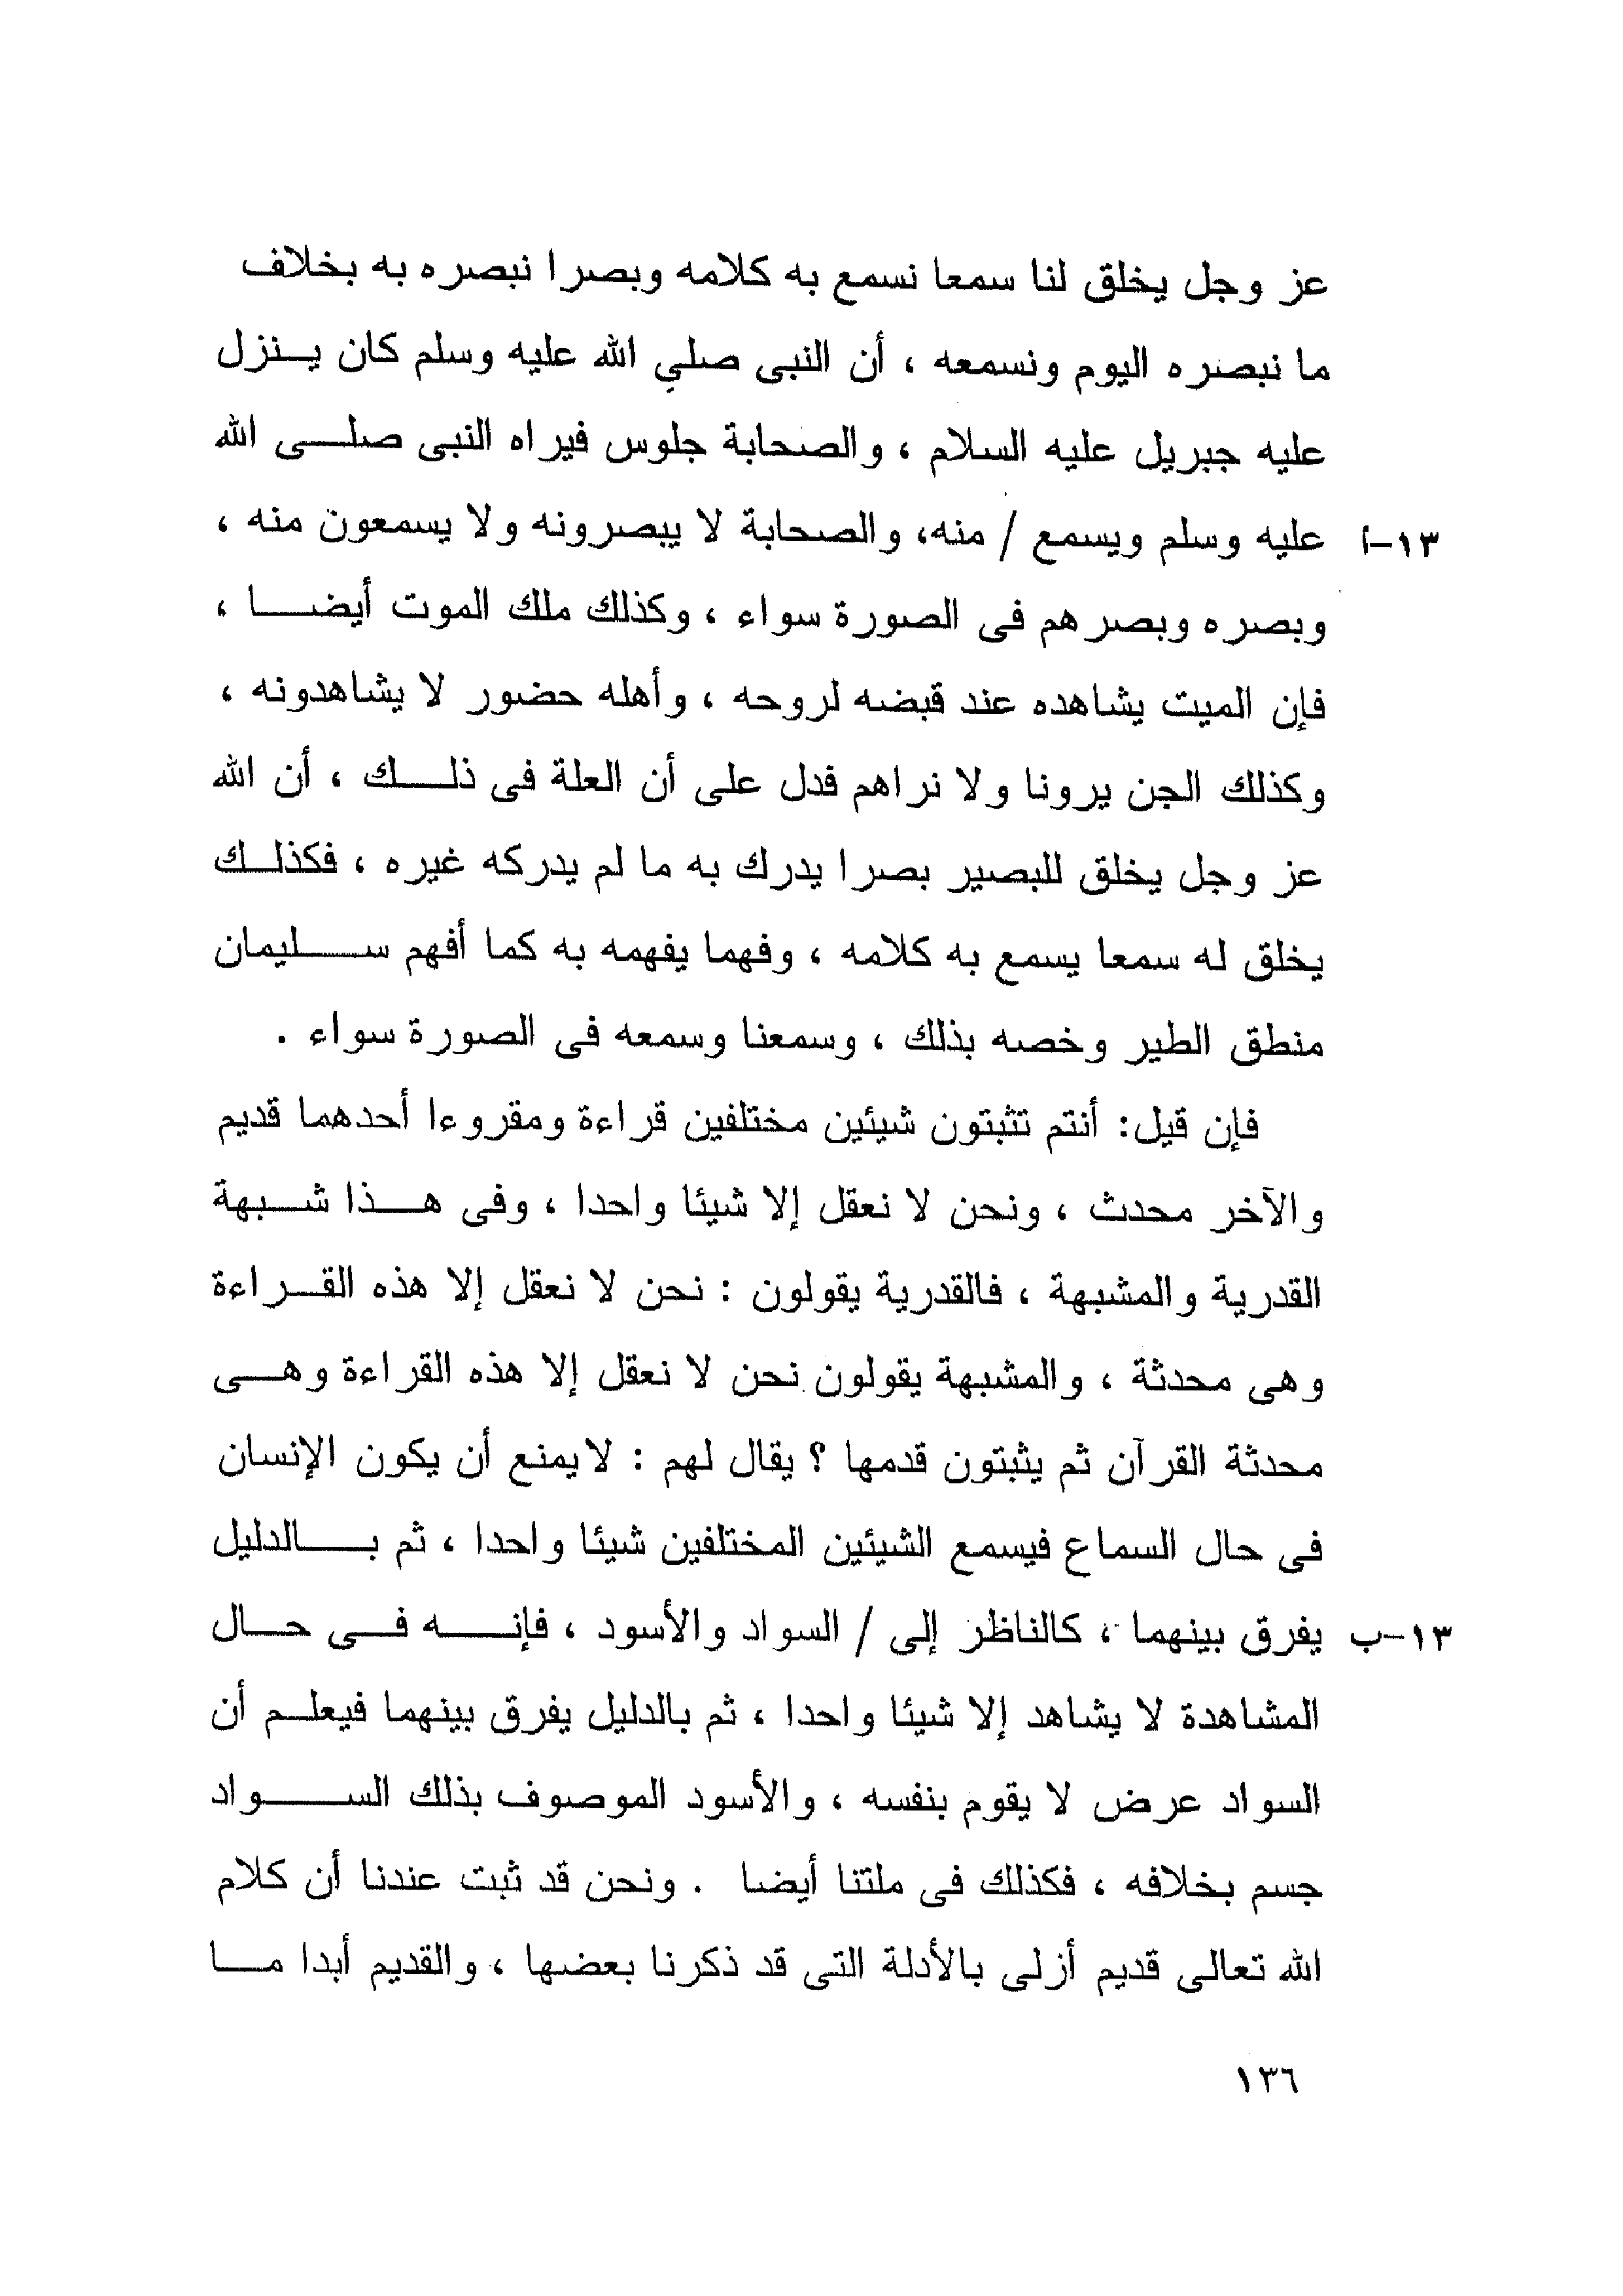 عز وجل يخلق لنا سمعا نسمع به كلامه وبصرا نبصره به بخلاف
ما نبصره اليوم ونسمعه ، أن النبى صلي الله عليه وسلم كان ينزل
عليه جبريل عليه السلام ، والصحابة جلوس فيراه النبى صلى الله
١٣-أ عليه وسلم ويسمع / منه، والصحابة لا يبصرونه ولا يسمعون منه ،
وبصره وبصرهم فى الصورة سواء ، وكذلك ملك الموت أيضا ،
فإن الميت يشاهده عند قبضه لروحه ، وأهله حضور لا يشاهدونه ،
وكذلك الجن يرونا ولا نراهم فدل على أن العلة فى ذلك ، أن الله
عز وجل يخلق للبصير بصرا يدرك به ما لم يدركه غيره ، فكذلك
يخلق له سمعا يسمع به كلامه ، وفهما يفهمه به كما أفهم سليمان
منطق الطير وخصه بذلك ، وسمعنا وسمعه فى الصورة سواء .
فإن قيل: أنتم تثبتون شيئين مختلفين قراءة ومقروءا أحدهما قديم
والآخر محدث ، ونحن لا نعقل إلا شيئا واحدا ، وفى هذا شبهة
القدرية والمشبهة ، فالقدرية يقولون : نحن لا نعقل إلا هذه القراءة
وهى محدثة ، والمشبهة يقولون نحن لا نعقل إلا هذه القراءة وهى
محدثة القرآن ثم يثبتون قدمها ؟ يقال لهم : لايمنع أن يكون الإنسان
فى حال السماع فيسمع الشيئين المختلفين شيئا واحدا ، ثم بالدليل
١٣-ب يفرق بينهما ، كالناظر إلى / السواد والأسود ، فإنه فى حال
المشاهدة لا يشاهد إلا شيئا واحدا ، ثم بالدليل يفرق بينهما فيعلم أن
السواد عرض لا يقوم بنفسه ، والأسود الموصوف بذلك السواد
جسم بخلافه ، فكذلك فى ملتنا أيضا . ونحن قد ثبت عندنا أن كلام
الله تعالى قديم أزلى بالأدلة التى قد ذكرنا بعضها ، والقديم أبدا ما
١٣٦